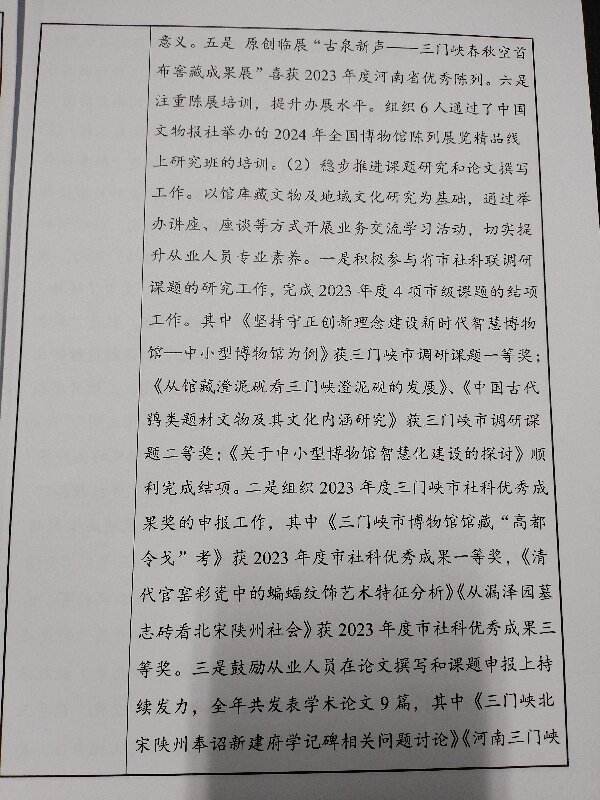 意义。五是 原创临展“古泉新声——三门峡春秋空首
布窖藏成果展”喜获 2023 年度河南省优秀陈列。六是
注重陈展培训，提升办展水平。组织 6 人通过了中国
文物报社举办的 2024 年全国博物馆陈列展览精品线
上研究班的培训。（2）稳步推进课题研究和论文撰写
工作。以馆库藏文物及地域文化研究为基础，通过举
办讲座、座谈等方式开展业务交流学习活动，切实提
升从业人员专业素养。一是积极参与省市社科联调研
课题的研究工作，完成 2023 年度 4 项市级课题的结项
工作。其中《坚持守正创新理念建设新时代智慧博物
馆—中小型博物馆为例》获三门峡市调研课题一等奖；
《从馆藏澄泥砚看三门峡澄泥砚的发展》、《中国古代
鸮类题材文物及其文化内涵研究》获三门峡市调研课
题二等奖；《关于中小型博物馆智慧化建设的探讨》顺
利完成结项。二是组织 2023 年度三门峡市社科优秀成
果奖的申报工作，其中《三门峡市博物馆馆藏“高都
令戈”考》获 2023 年度市社科优秀成果一等奖，《清
代官窑彩瓷中的蝙蝠纹饰艺术特征分析》《从漏泽园墓
志砖看北宋陕州社会》获 2023 年度市社科优秀成果三
等奖。三是鼓励从业人员在论文撰写和课题申报上持
续发力，全年共发表学术论文 9 篇，其中《三门峡北
宋陕州奉诏新建府学记碑相关问题讨论》《河南三门峡